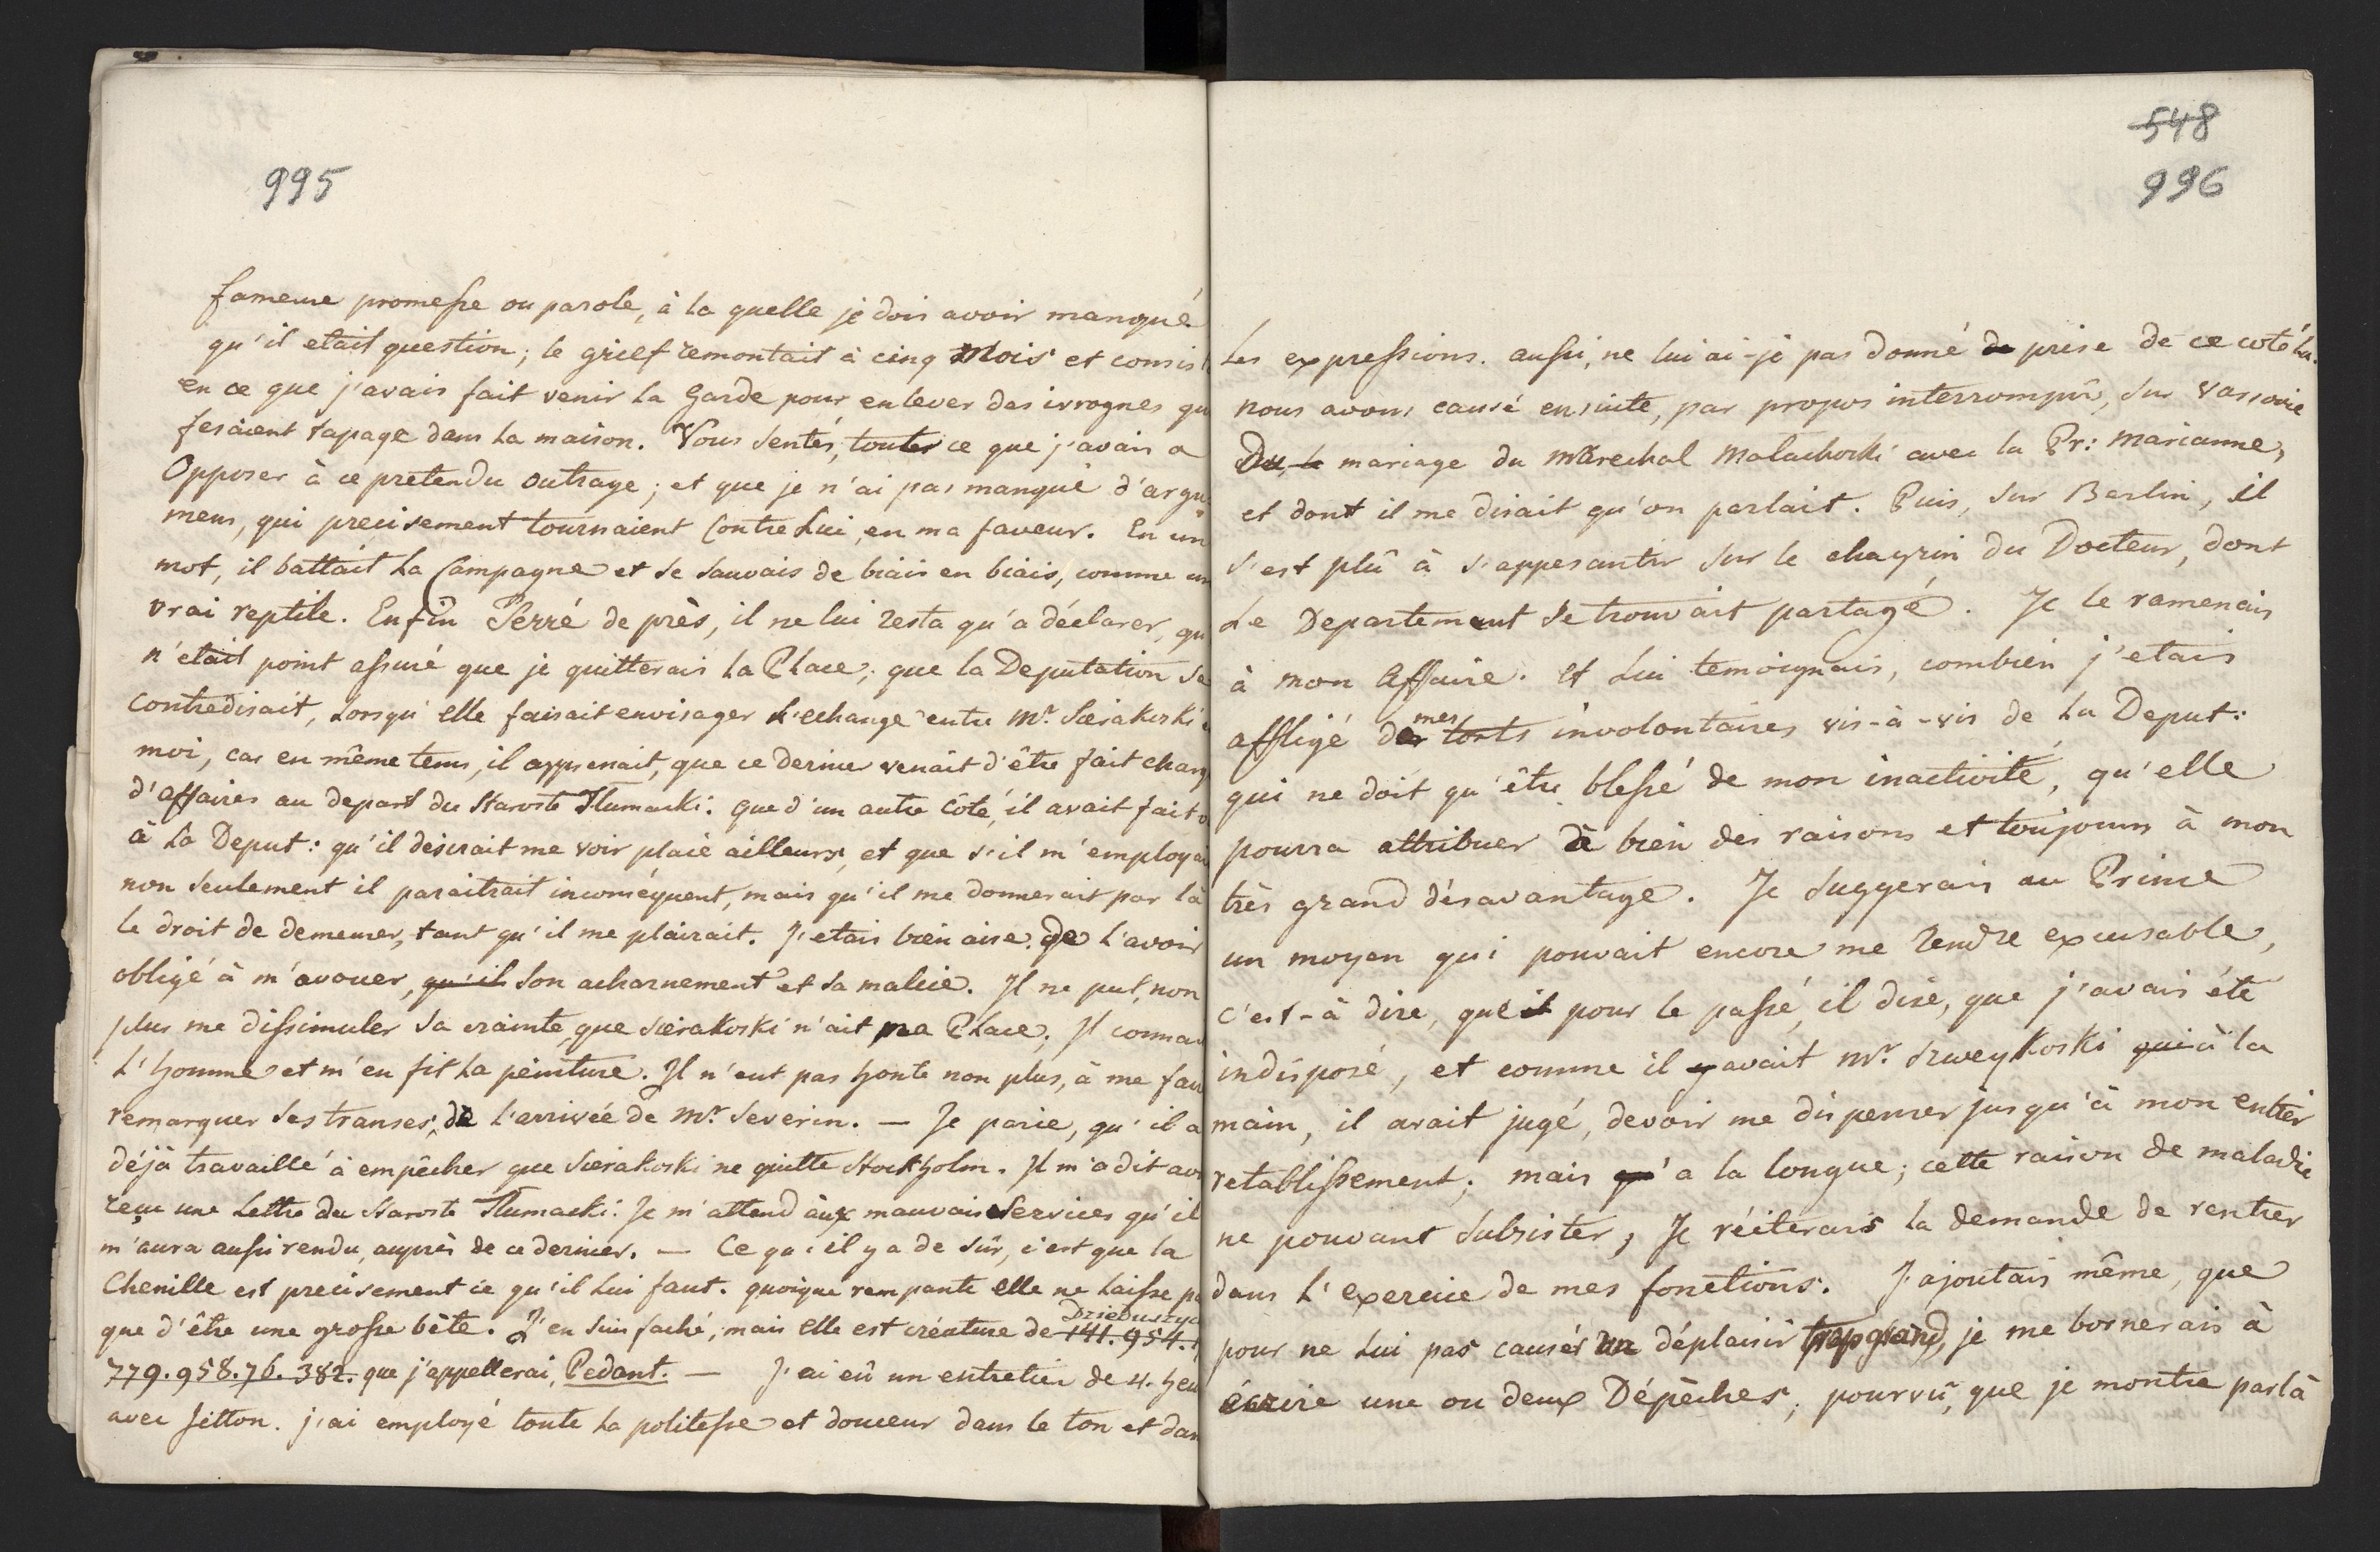 995
fameuse promesse ou parole, à la quelle je dois avoir manqué
qu'il etait question; le grief remontait à cinq Mois et consis
en ce que j'avais fait venir la Garde pour enlever des ivrognes qu
fesaient tapage dans la maison. Vous sentés, toutes ce que j'avais a
Opposer à ce pretendu outrage; et que je n'ai pas manqué d'argu
mens, qui precisement tournaient Contre Lui, en ma faveur. En un
mot, il battait la Campagne et se sauvais de biais en biais, comme un
vrai reptile. Enfin Serré de près, il ne lui resta qu'a déclarer, qu
n'etait point assuré que je quitterais la Place; que la Deputation se
contredisait, lorsqu'elle faisait envisager l'echange entre Mr. Sierakoski
moi, car en même tems, il apprenait, que ce dernier venait d'être fait charg
d'affaires au depart du Staroste Tlumacki. que d'un autre côté, il avait fait
à la Deput: qu'il désirait me voir placé ailleurs, et que s'il m'employai
non seulement il paraitrait inconséquent, mais qu'il me donnerait par là
le droit de demeurer, tant qu'il me plairait. J'etais bien aise de l'avoir
obligé à m'avouer, qu'il son acharnement et sa malice. Il ne put, non
plus me dissimuler sa crainte, que Sierakoski n'ait ma Place. Il connai
l'homme et m'en fit la peinture. Il n'eut pas honte non plus, à me fai
remarquer ses transes, de l'arrivée de Mr. Severin. — Je parie, qu'il a
déjà travaillé à empêcher que Sierakoski ne quitte Stockholm. Il m'a dit avo
reçu une Lettre du Staroste Tlumacki. Je m'attend aux mauvais Services qu'il
m'aura aussi rendu, auprès de ce dernier. — Ce qu'il y a de sûr, c'est que la
Chenille est precisement ce qu'il Lui faut. quoique rampante elle ne laisse pa
que d'être une grosse bête. J'en suis faché; mais elle est créature de 141.954.
Dzieduszyc
779.958.76.382. que j'appellerai, Pedant. — J'ai eû un entretien de 4. heu
avec Jetton. j'ai employé toute la politesse et douceur dans le ton et dan
548
996
Les expressions. aussi, ne lui ai-je pas donné de prise de ce coté la.
nous avons causé ensuite, par propos interrompû, sur Varsovie
Du, le mariage du Marechal Malachoski avec la Pr: Marianne,
et dont il me disait qu'on parlait. Puis, sur Berlin, il
s'est plû à s'appesantir sur le chagrin du Docteur, dont
Le Departement se trouvait partagé. Je le ramenais
à mon Affaire. et Lui temoignais, combien j'etais
affligé des mes torts involontaires vis-à-vis de la Deput:
qui ne doit qu'être blessé de mon inactivité, qu'elle
pourra attribuer à bien des raisons et toujours à mon
très grand désavantage. Je suggerais au Prince
un moyen qui pouvait encore me rendre excusable,
c'est-à dire, que il pour le passé, il dise, que j'avais été
indisposé, et comme il y avait Mr. Szweykoski qui à la
main, il avait jugé, devoir me dispenser jusqu'à mon entier
retablissement; mais qu'a la longue; cette raison de maladie
ne pouvant subsister, Je réiterais la demande de rentrer
dans l'exercice de mes fonctions. J'ajoutais même, que
pour ne Lui pas causér un déplaisir trop grand, je me bornerais à
écrire une ou deux Dépêches, pourvû, que je montre parlà